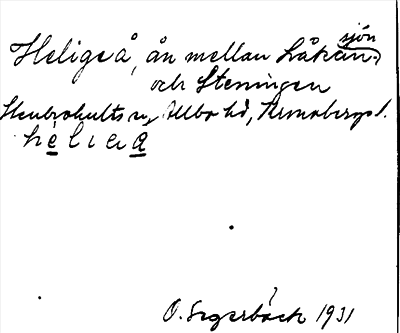 Helige å, ån mellan Låkan-sjön
och Steningen
Stenbrohults sn, Allbo hd, Kronobergs l.
O. Segerbäck 1931